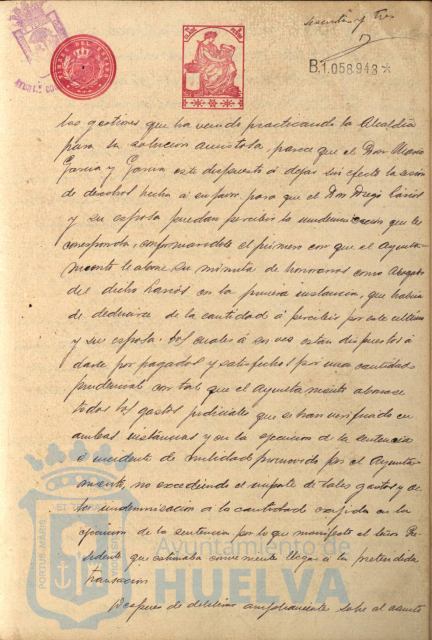 sesenta y tres
TIMBRE DEL ESTADO
B.1.058.943*
las gestiones que ha venido practicando la Alcaldía
para su solucion amistosa, parece que el Don Mario
Garcia y Garcia está dispuesto á dejar sin efecto la cesión
de derechos hecha á su favor para que el Don Diego
y su esposa puedan percibir la indemnizacion que les
corresponda, conformandose el primero con que el Ayunta-
miento le abone su minuta de honorarios como Abogado
del dicho en la primera instancia, que habria
de deducirse de la cantidad á percibir por este ultimo
y su esposa, los cuales á su vez están dispuestos á
darse por pagados y satisfechos por una cantidad
prudencial con tal que el Ayuntamiento abonase
todos los gastos judiciales que se han verificado en
ambas instancias y en la ejecucion de la sentencia
é incidente de nulidad promovido por el Ayunta-
miento, no excediendo el importe de tales gastos y de
la indemnizacion á la cantidad en la
ejecucion de la sentencia por lo que manifestó el Señor Pre-
sidente que estimaba conveniente llegar á la pretendida
transacción.
Despues de deliberar ampliamente sobre el asunto
PORTUS MARIS
Ayuntamiento de
HUELVA